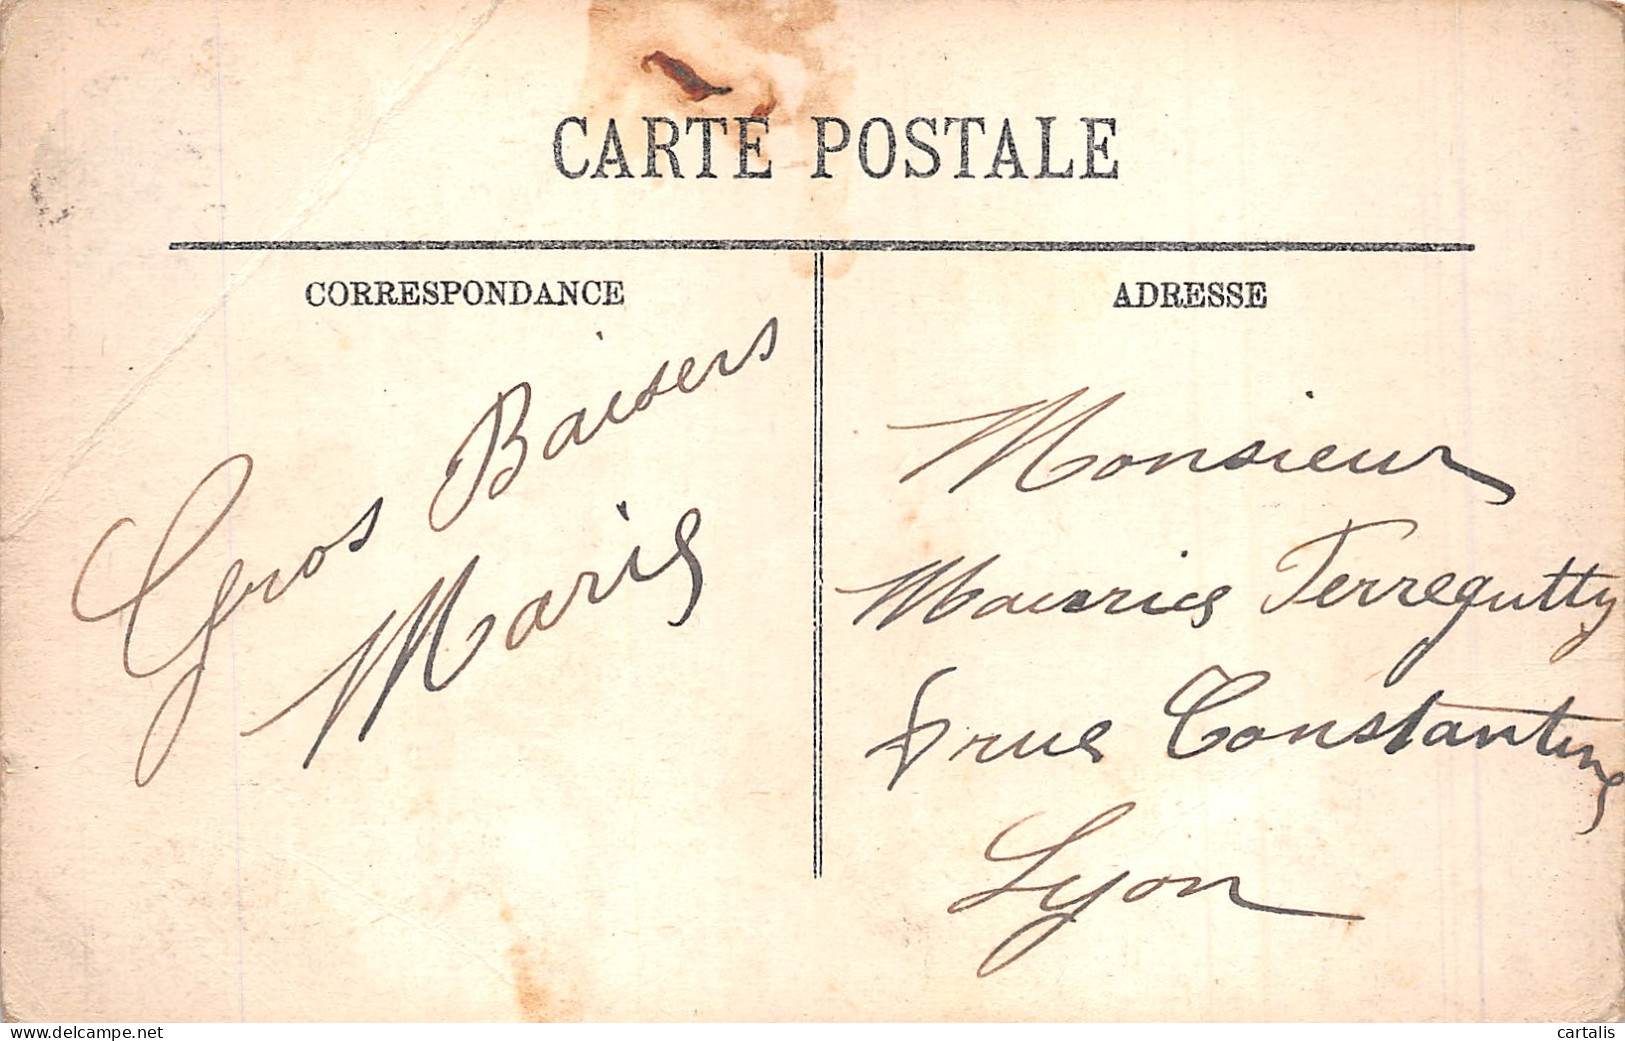 CARTE POSTALE
CORRESPONDANCE
Gros Baisers
Marie
ADRESSE
Monsieur
Maurice Terregutty
rue Constantine
Lyon
www.delcampe.net
cartalis